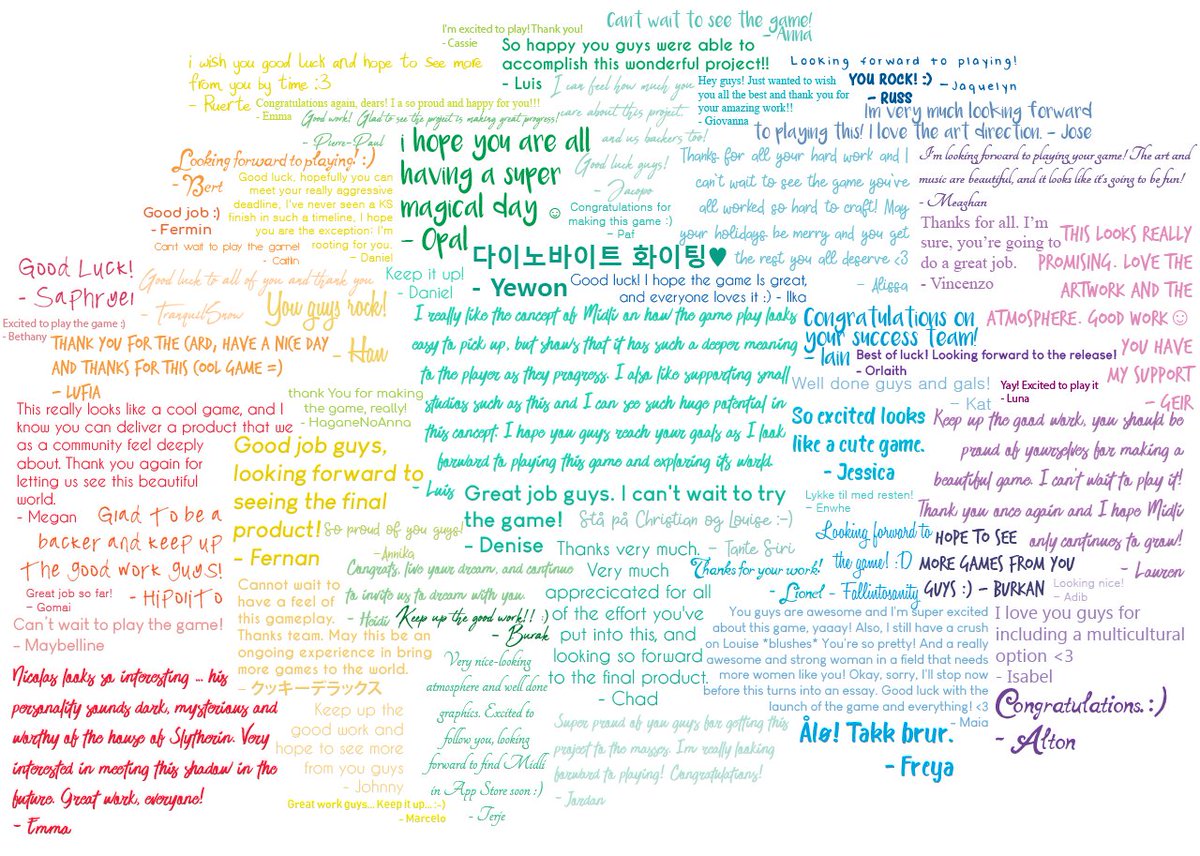 Can't wait to see the game!
- Anna
I'm excited to play! Thank you!
- Cassie
So happy you guys were able to
accomplish this wonderful project!!
- Luis
i wish you good luck and hope to see more
from you by time :3
- Ruerte
Looking forward to playing!
- Jaquelyn
YOU ROCK! :)
- RUSS
I can feel how much you
care about this project.
and us backers too!
Hey guys! Just wanted to wish
you all the best and thank you for
your amazing work!!
- Giovanna
Congratulations again, dears! I a so proud and happy for you!!!
- Emma
Good work! Glad to see the project is making great progress!
- Pierre-Paul
Im very much looking forward
to playing this! I love the art direction. - Jose
i hope you are all
having a super
magical day ☺
- Opal
Good luck guys!
- Jacopo
Looking forward to playing! :)
- Bert
Good luck, hopefully you can
meet your really aggressive
deadline, I've never seen a KS
finish in such a timeline, I hope
you are the exception; I'm
rooting for you.
- Daniel
Thanks for all your hard work and I
can't wait to see the game you've
all worked so hard to craft! May
your holidays be merry and you get
the rest you all deserve <3
- Alissa
I'm looking forward to playing your game! The art and
music are beautiful, and it looks like it's going to be fun!
- Meaghan
Good job :)
- Fermin
Congratulations for
making this game :)
- Paf
Thanks for all. I'm
sure, you're going to
do a great job.
- Vincenzo
THIS LOOKS REALLY
PROMISING. LOVE THE
ARTWORK AND THE
ATMOSPHERE. GOOD WORK ☺
YOU HAVE
MY SUPPORT
- GEIR
Cant wait to play the game!
- Caitlin
다이노바이트 화이팅♥
- Yewon
Good Luck!
- Saphryei
Good luck to all of you and thank you
- TranquilSnow
Keep it up!
- Daniel
Good luck! I hope the game Is great,
and everyone loves it :) - Ilka
You guys rock!
- Hau
Excited to play the game :)
- Bethany
I really like the concept of Midli on how the game play looks
easy to pick up, but shows that it has such a deeper meaning
to the player as they progress. I also like supporting small
studios such as this and I can see such huge potential in
this concept. I hope you guys reach your goals as I look
forward to playing this game and exploring its world
- Luis
Congratulations on
your success team!
- Iain
THANK YOU FOR THE CARD, HAVE A NICE DAY
AND THANKS FOR THIS COOL GAME =)
- LUFIA
Best of luck! Looking forward to the release!
- Orlaith
Well done guys and gals!
- Kat
Yay! Excited to play it
- Luna
thank You for making
the game, really!
- HaganeNoAnna
This really looks like a cool game, and I
know you can deliver a product that we
as a community feel deeply
about. Thank you again for
letting us see this beautiful
world.
- Megan
So excited looks
like a cute game.
- Jessica
Keep up the good work, you should be
proud of yourselves for making a
beautiful game. I can't wait to play it!
Thank you once again and I hope Midli
only continues to grow!
- Lauren
Good job guys,
looking forward to
seeing the final
product!
- Fernan
Great job guys. I can't wait to try
the game!
- Denise
Lykke til med resten!
- Enwhe
Glad To be a
backer and keep up
The good work guys!
- Hipolito
So proud of you guys!
- Annika
Stå på Christian og Louise :-)
- Tante Siri
Looking forward to
the game! :D
- Fallintosanity
HOPE TO SEE
MORE GAMES FROM YOU
GUYS :) - BURKAN
Thanks very much.
Very much
apprecicated for all
of the effort you've
put into this, and
looking so forward
to the final product.
- Chad
Congrats, live your dream, and continue
to invite us to dream with you.
- Heidi
Thanks for your work!
- Lionel
Looking nice!
- Adib
Great job so far!
- Gomai
Cannot wait to
have a feel of
this gameplay.
Thanks team. May this be an
ongoing experience in bring
more games to the world.
- クッキーデラックス
Keep up the good work!! :)
- Burak
You guys are awesome and I'm super excited
about this game, yaaay! Also, I still have a crush
on Louise *blushes* You're so pretty! And a really
awesome and strong woman in a field that needs
more women like you! Okay, sorry, I'll stop now
before this turns into an essay. Good luck with the
launch of the game and everything! <3
- Maia
I love you guys for
including a multicultural
option <3
- Isabel
Can't wait to play the game!
- Maybelline
Very nice-looking
atmosphere and well done
graphics. Excited to
follow you, looking
forward to find Midli
in App Store soon :)
- Terje
Nicolas looks so interesting ... his
personality sounds dark, mysterious and
worthy of the house of Slytherin. Very
interested in meeting this shadow in the
future. Great work, everyone!
- Emma
Congratulations. :)
- Alton
Keep up the
good work and
hope to see more
from you guys
- Johnny
Super proud of you guys for getting this
project to the masses. Im really looking
forward to playing! Congratulations!
- Jordan
Ålø! Takk brur.
- Freya
Great work guys... Keep it up... :-)
- Marcelo